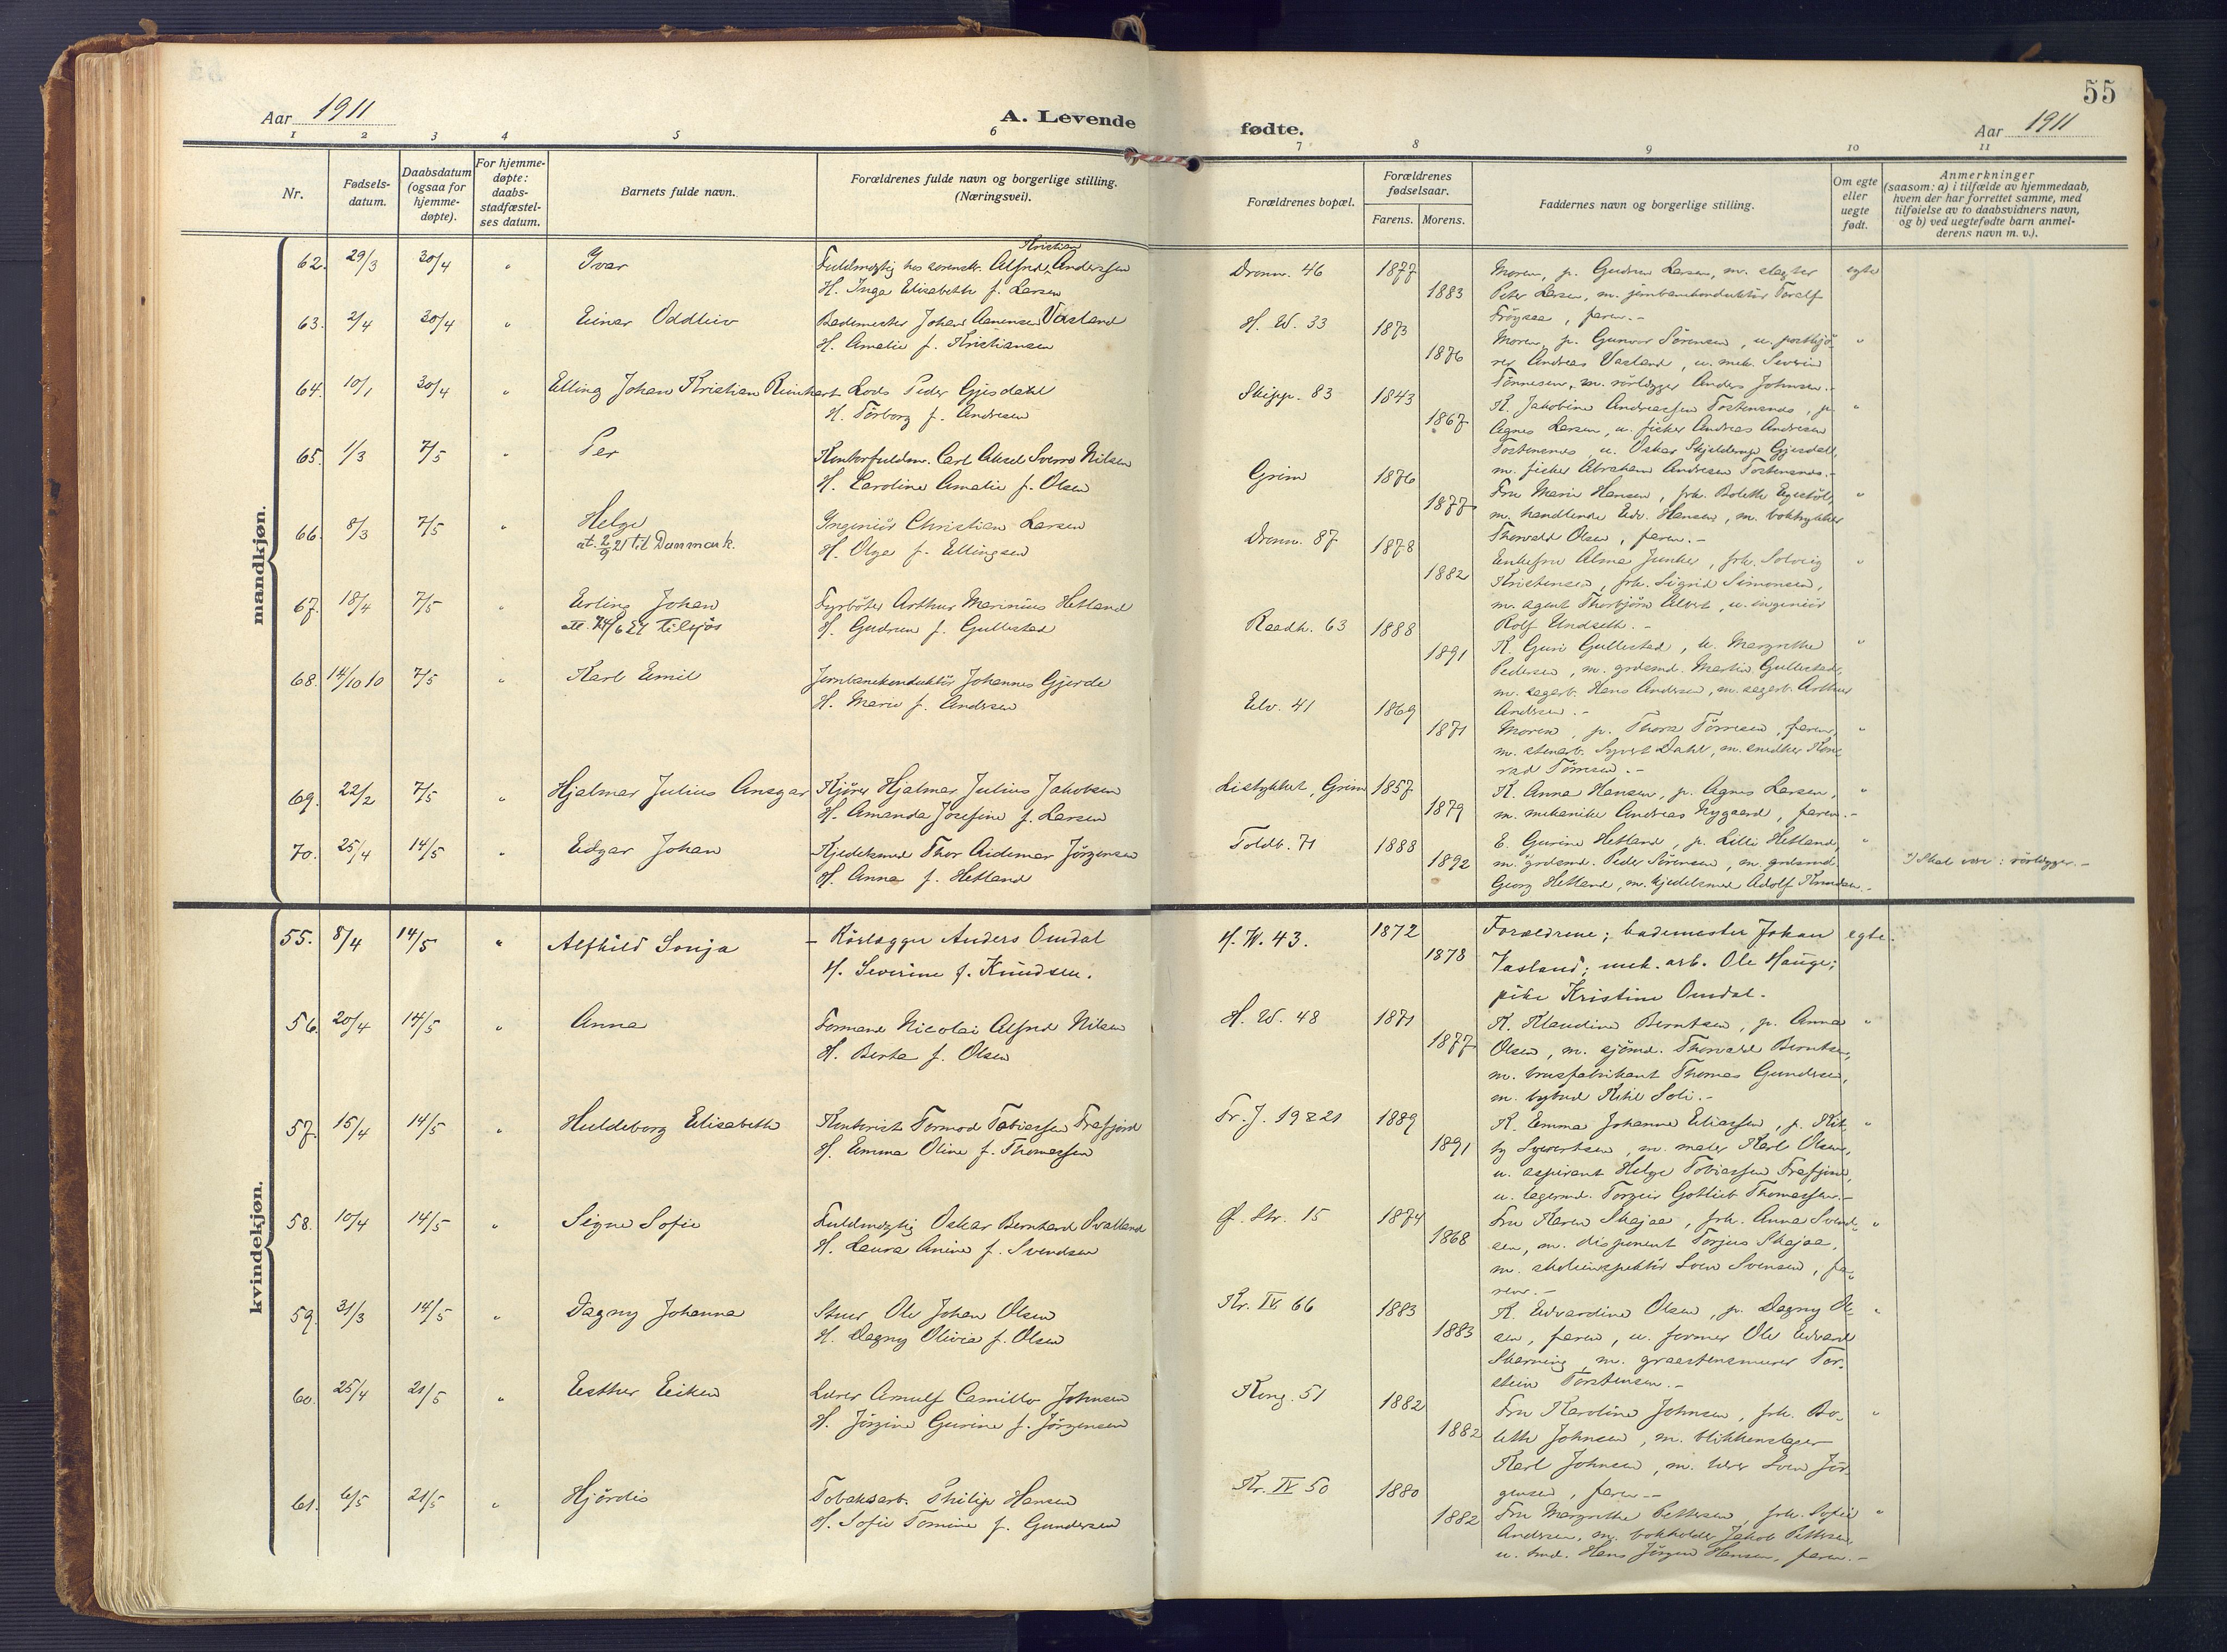 55
Aar 1911
A. Levende
fødte.
Aar 1911
1 2 3 4 5 6 7 8 9 10 11
Nr.
Fødsels-
datum.
Daabsdatum
(ogsaa for
hjemme-
døpte).
For hjemme-
døpte:
daabs-
stadfæstel-
ses datum.
Barnets fulde navn.
Forældrenes fulde navn og borgerlige stilling.
(Næringsvei).
Forældrenes bopæl.
Forældrenes
fødselsaar.
Farens. Morens.
Faddernes navn og borgerlige stilling.
Om egte
eller
uegte
født.
Anmerkninger
(saasom: a) i tilfælde av hjemmedaab,
hvem der har forrettet samme, med
tilføielse av to daabsvidners navn,
og b) ved uegtefødte barn anmel-
derens navn m. v.).
mandkjøn.
62. 29/3 30/4 " Ivar
Kristian
Fuldmægtig hos sorenskr. Alfred Anderssen
H. Inga Elisabeth f. Larsen
Dronn. 46 1877 1883
Moren, p. Gudrun Larsen, m. slagter
Peter Larsen, m. jernbanekonduktør Toralf
Frøysaa, faren.-
egte
63. 2/4 30/4 " Einar Oddleiv
Bademester Johan Aanensen Vasland
H. Amalie f. Kristiansen
H. W. 33 1873 1876
Moren, p. Gunvor Sørensen, u. postkjø-
rer Andreas Vasland, u. mek. Severin
Tønnesen, m. rørlægger Anders Johnsen.-
"
64. 10/1 30/4 " Elling Johan Kristian Reinhart
Lods Peder Gjesdahl
H. Torborg f. Andresen
Skipp. 83 1843 1867
K. Jakobine Andreassen Tostensnes, p.
Agnes Larsen, u. fisker Andreas Andresen
Tostensnes, u. Oskar Skjelderup Gjesdahl,
m. fisker Abraham Andresen Tostensnes.-
"
65. 1/3 7/5 " Per
Kontorfuldm. Carl Aksel Sverre Nilsen
H. Caroline Amalie f. Olsen
Grim 1876 1877
Fru Marie Hansen, frk. Bolette
m. handlende Edv. Hansen, m. boktrykker
Thorvald Olsen, faren.-
"
66. 8/3 7/5 " Helge
at. 2/9 21 til Danmark.
Ingeniør Christian Larsen
H. Olga f. Ellingsen
Dronn. 87 1878 1882
Enkefru Alma Junker, frk. Solveig
Kristensen, frk. Sigrid Simonsen,
m. agent Thorbjørn Alvert, u. ingeniør
Rolf Undseth.-
"
67. 18/4 7/5 " Erling Johan
att. 24/6 27 tilsjøs
Fyrbøter Arthur Marinius Hetland
H. Gudrun f. Gullestad
Raadh. 63 1888 1891
K. Guri Gullestad, k. Margrethe
Pedersen, m. grdsmd. Martin Gullestad,
m. sagarb. Hans Andersen, m. sagarb. Arthur
Andersen.-
"
68. 14/10 10 7/5 " Karl Emil
Jernbanekonduktør Johannes Gjerde
H. Marie f. Andersen
Elv. 41 1869 1871
Moren, p. Thora Tørresen, faren,
m. stenarb. Syvert Dahl, m. snedker Kon-
rad Tørresen.-
"
69. 22/2 7/5 " Hjalmar Julius Ansgar
Kjører Hjalmar Julius Jakobsen
H. Amanda Josefine f. Larsen
Listykket, Grim 1857 1879
K. Anna Hansen, p. Agnes Larsen,
m. mekaniker Andreas Nygaard, faren.-
"
70. 25/4 14/5 " Edgar Johan
Kjedelsmed Thor Aidemar Jørgensen
H. Anna f. Hetland
Toldb. 71 1888 1892
E. Gurine Hetland, p. Lilli Hetland,
m. grdsmd. Peder Sørensen, m. grdsmd.
Georg Hetland, m. kjedelsmed Adolf Knudsen.-
"
Skal være: rørlægger.-
kvindekjøn.
55. 8/4 14/5 " Alfhild Sonja
- Rørlægger Anders Omdal
H. Severine f. Knudsen.
H. W. 43. 1872 1878
Forældrene; bademester Johan
Vasland; mek. arb. Ole Hauge;
pike Kristine Omdal.
egte.
56. 20/4 14/5 " Anna
Formand Nicolai Alfred Nilsen
H. Berta f. Olsen
H. W. 48 1871 1877
K. Klaudine Berntsen, p. Anna
Olsen, m. sjømd. Thorvald Berntsen,
m. brusfabrikant Thomas Gundersen,
m. bybud Ketil Soli.-
"
57. 15/4 14/5 " Huldeborg Elisabeth
Kontorist Tormod Tobiassen Trafjord
H. Emma Oline f. Thomassen
Fr. J. 19 & 21 1889 1891
K. Emma Johanne Eliassen, p. Kit-
ty Syvertsen, m. maler Karl Olsen,
u. aspirant Helge Tobiassen Trafjord,
u. lagermd. Torgeir Gotlieb Thomassen.-
"
58. 10/4 14/5 " Signe Sofie
Fuldmægtig Oskar Bernhard Svalland
H. Laura Anine f. Svendsen
Ø. Str. 15 1874 1868
Fru Karen Skajaa, frk. Anna Svend-
sen, m. disponent Torjus Skajaa,
m. skoleinspektør Sven Svensen, fa-
ren.-
"
59. 31/3 14/5 " Dagny Johanna
Stuer Ole Johan Olsen
H. Dagny Olivia f. Olsen
Kr. IV 66 1883 1883
K. Edvardine Olsen, p. Dagny Ol-
sen, faren, u. former Ole Edvard
Skarning, m. graastensmurer Tor-
stein Torstensen.-
"
60. 25/4 21/5 " Esther Eiken
Lærer Arnulf Camillo Johnsen
H. Jørgine Gurine f. Jørgensen
Kong. 51 1882 1882
Fru Karoline Johnsen, frk. Bo-
lette Johnsen, m. blikkenslager
Karl Johnsen, m. lærer Sven Jør-
gensen, faren.-
"
61. 6/5 21/5 " Hjørdis
Tobaksarb. Philip Hansen
H. Sofie Tomine f. Gundersen
Kr. IV 50 1880 1882
Fru Margrethe Pettersen, frk. Sofie
Andersen, m. bokholder Jakob Pettersen,
u. Hans Jørgen Hansen, faren.-
"